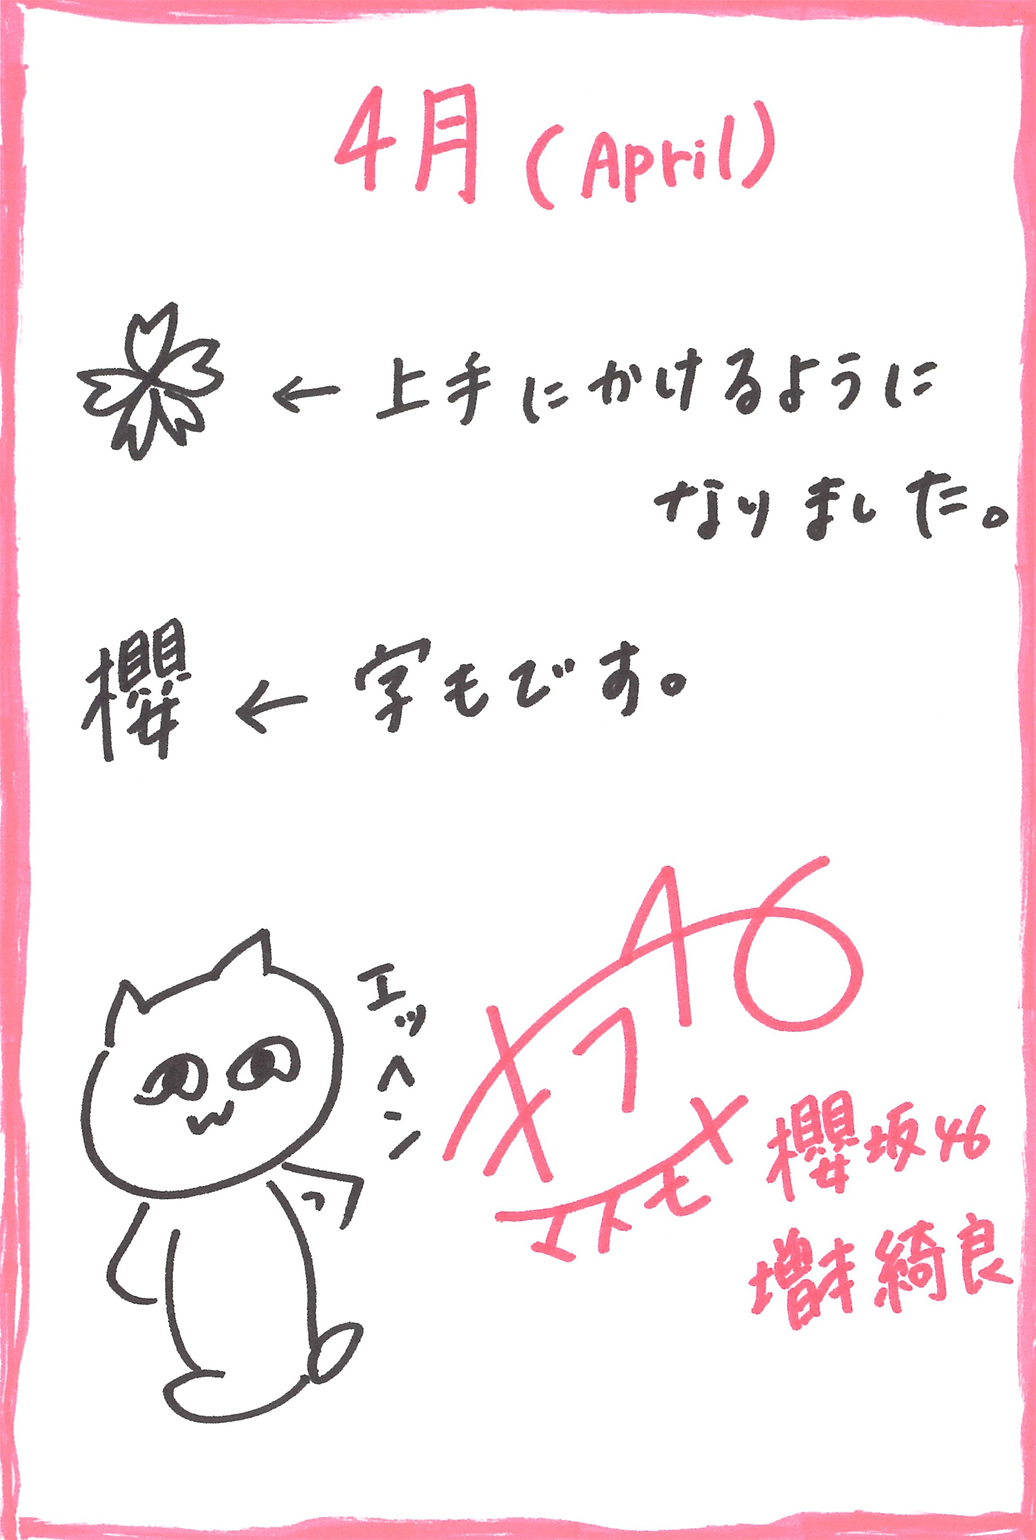 4月 (April)
← 上手にかけるように
なりました。
櫻 ← 字もです。
エッヘン
46
櫻坂46
増本綺良